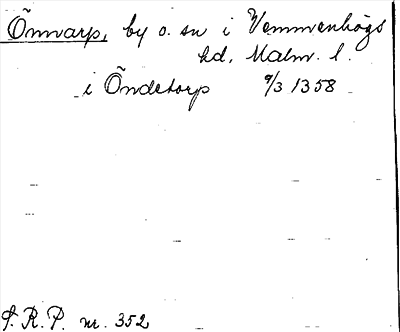 Õnnarp, by o. sn i Vemmenhögs
hd, Malm. l.
i Õndetorp 9/3 1358
S. R. P. nr. 352